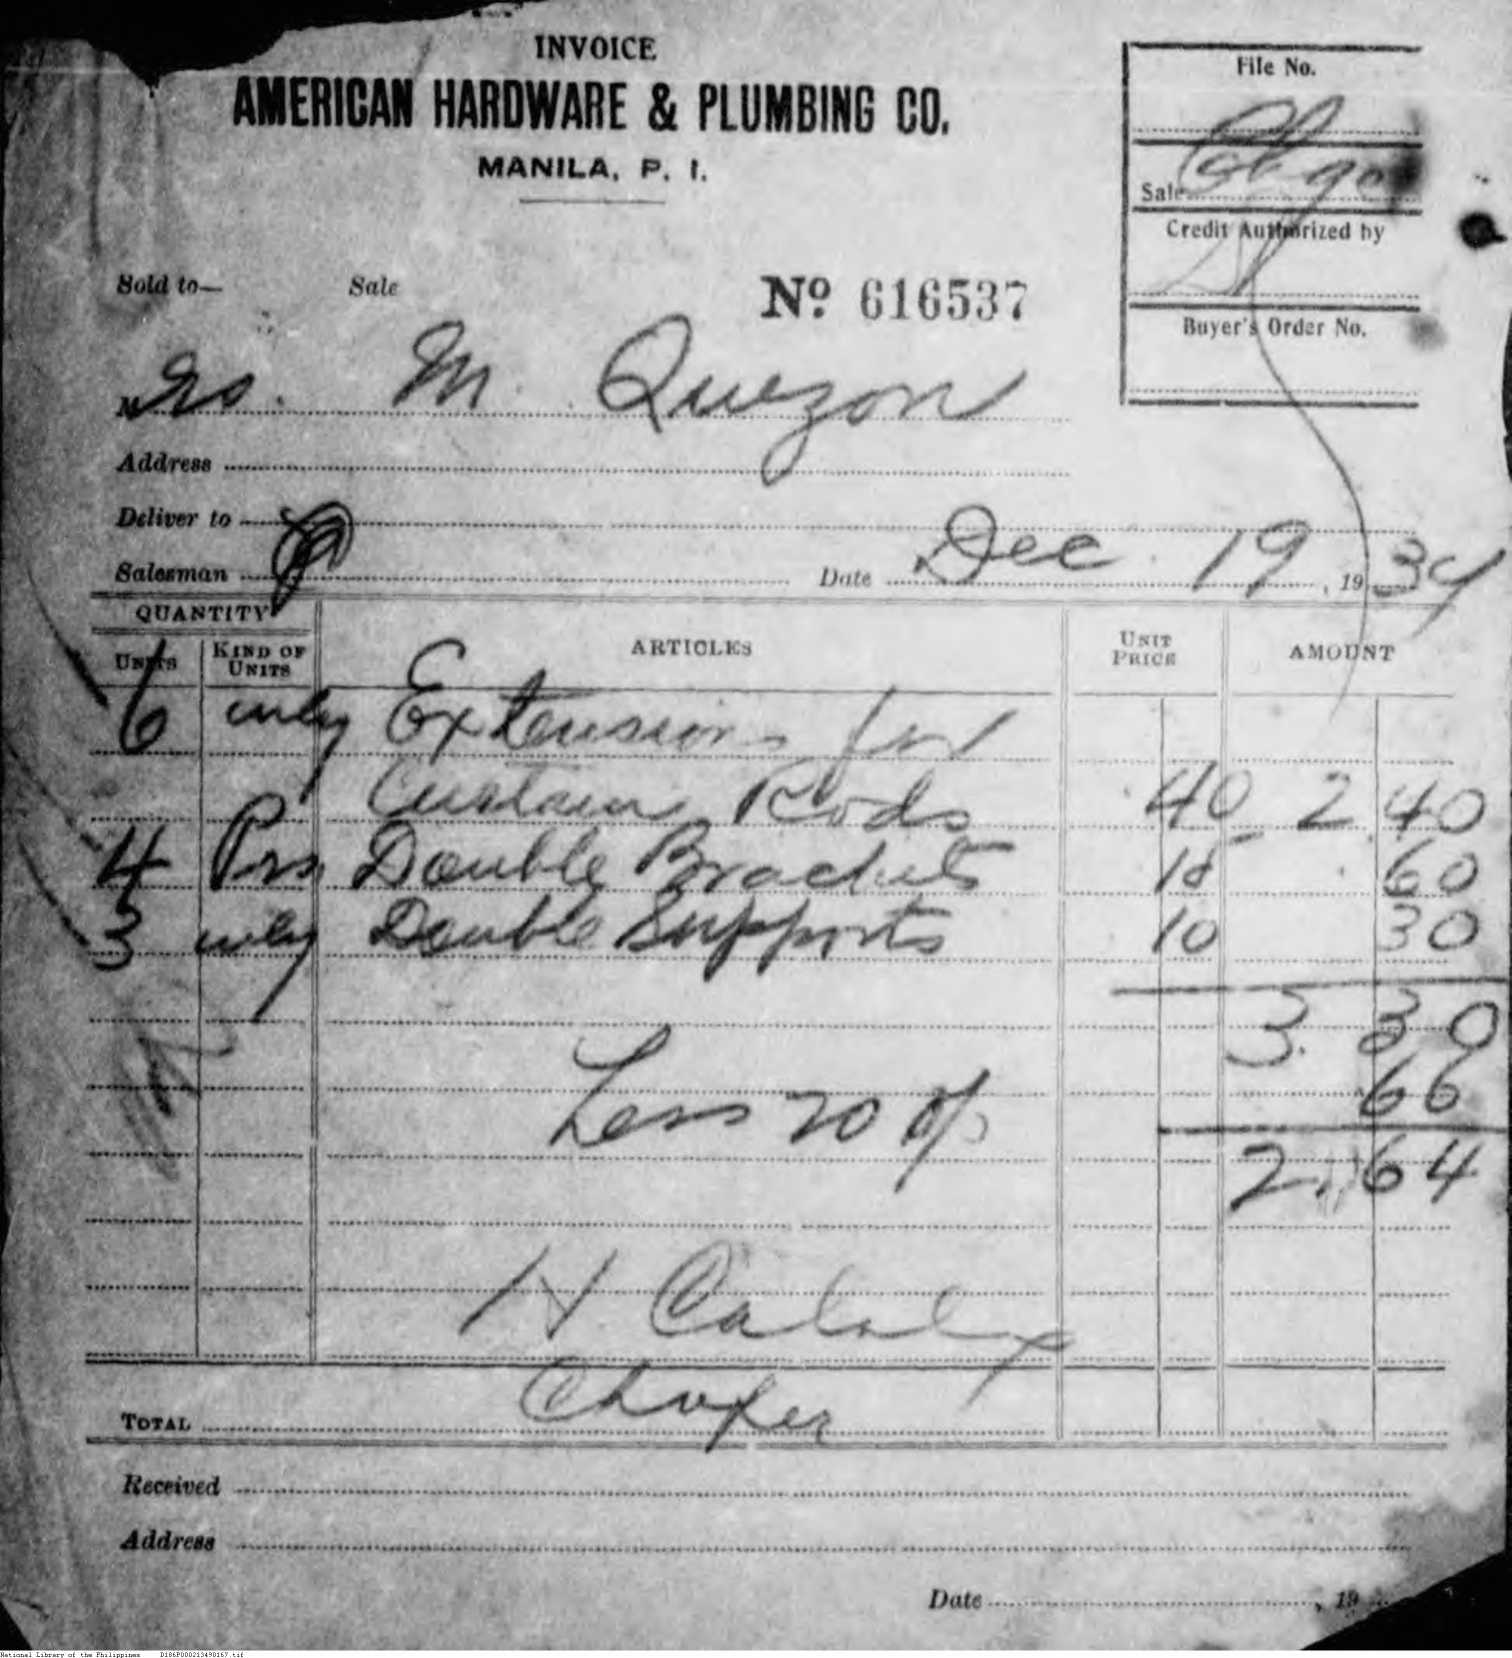 INVOICE
AMERICAN HARDWARE & PLUMBING CO.
MANILA, P. I.
File No.
Sale
Credit Authorized by
Buyer's Order No.
Sold to— Sale Nº 616537
Mrs. M. Quezon
Address
Deliver to
Salesman Date Dec 19, 1934
QUANTITY
UNITS KIND OF UNITS ARTICLES UNIT PRICE AMOUNT
6 only Extensions for
Curtain Rods 40 2 40
4 Prs Double Brackets 15 60
3 only Double Supports 10 30
3. 30
Less 20 % 66
2. 64
H
Chofer
TOTAL
Received
Address
Date , 19
National Library of the Philippines D186P000213498167.tif